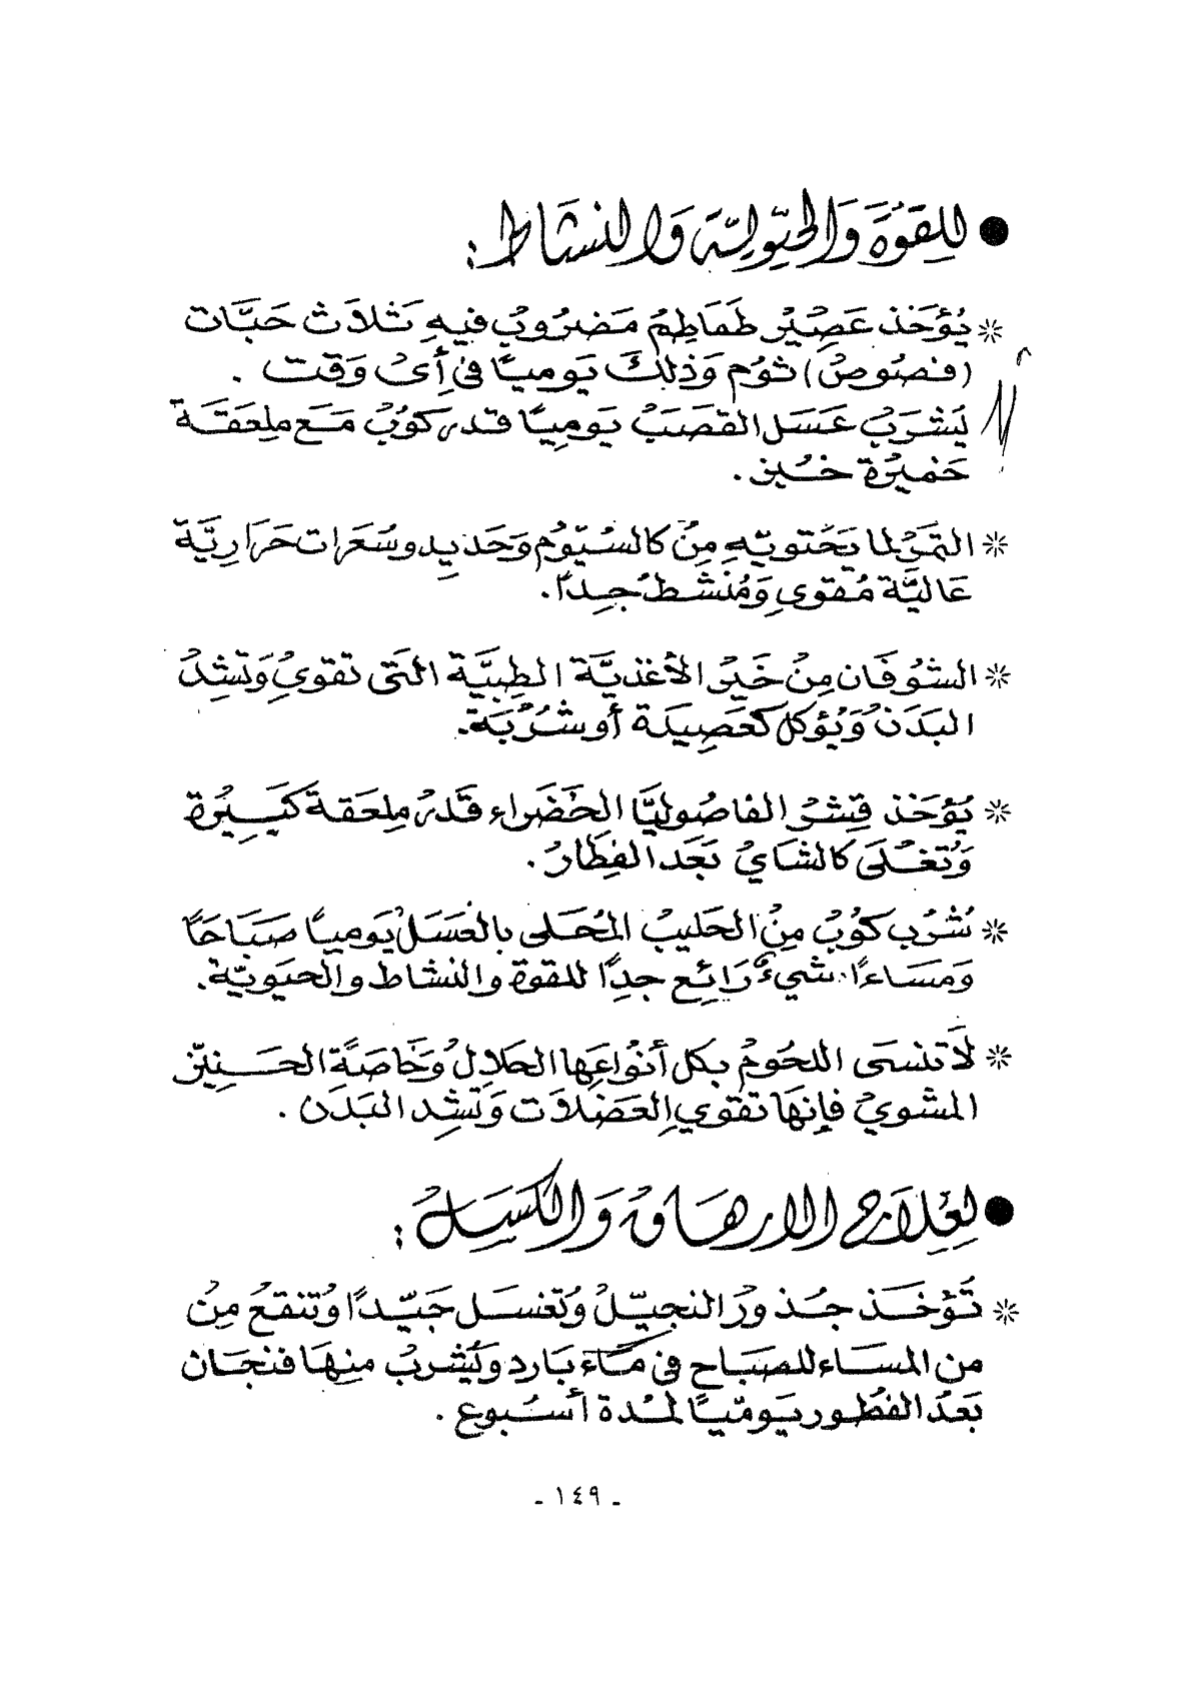 ● للقوة والحيوية والنشاط:
* يُؤخذ عصير طماطم مضروب فيه ثلاث حبّات
(فصوص) ثوم وذلك يوميًا في أي وقت .
يشرب عسل القصب يوميًا قدر كوب مع ملعقة
خميرة خبز .
* التمر لما يحتويه من كالسيوم وحديد وسعرات حرارية
عالية مقوي ومنشط جدًا .
* الشوفان من خير الأغذية الطبية التي تقوي وتشد
البدن ويؤكل كعصيدة أو شربة .
* يؤخذ قشر الفاصوليا الخضراء قدر ملعقة كبيرة
وتغلى كالشاي بعد الفطار .
* شرب كوب من الحليب المحلى بالعسل يوميًا صباحًا
ومساءًا شيء رائع جدًا للقوة والنشاط والحيوية .
* لا تنسى اللحوم بكل أنواعها الحلال وخاصة الحنيذ
المشوي فإنها تقوي العضلات وتشد البدن .
● لعلاج الارهاق والكسل :
* تؤخذ جذور النجيل وتغسل جيّدًا وتنقع من
من المساء للصباح في ماء بارد ويشرب منها فنجان
بعد الفطور يوميًا لمدة أسبوع .
- ١٤٩ -